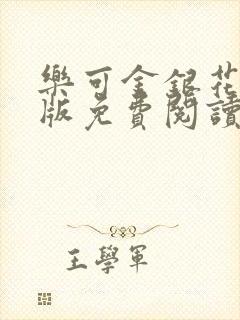 樂可金銀花
版免費閱讀
王學軍